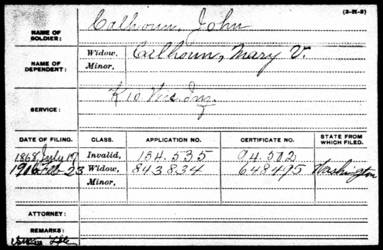 (3-21-2)
NAME OF SOLDIER: Calhoun, John
NAME OF DEPENDENT: Widow, Calhoun, Mary V.
Minor,
SERVICE: K 10 Inf
DATE OF FILING. CLASS. APPLICATION NO. CERTIFICATE NO. STATE FROM WHICH FILED.
1868 July 17 Invalid, 134.535 94.502
1916 Feb 23 Widow, 843834 648495 Washington
Minor,
ATTORNEY:
REMARKS: